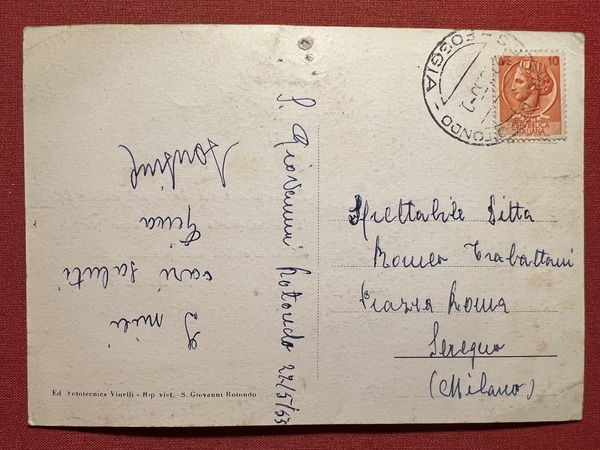 I miei
cari saluti
Gina
S. Giovanni Rotondo 22/5/53
Spettabile Ditta
Romeo Trabattoni
Piazza Roma
Seregno
(Milano)
Ed. Fototecnica Vinelli - Rip. viet. - S. Giovanni Rotondo
FOGGIA
ROTONDO
LIRE 10
ITALIANA